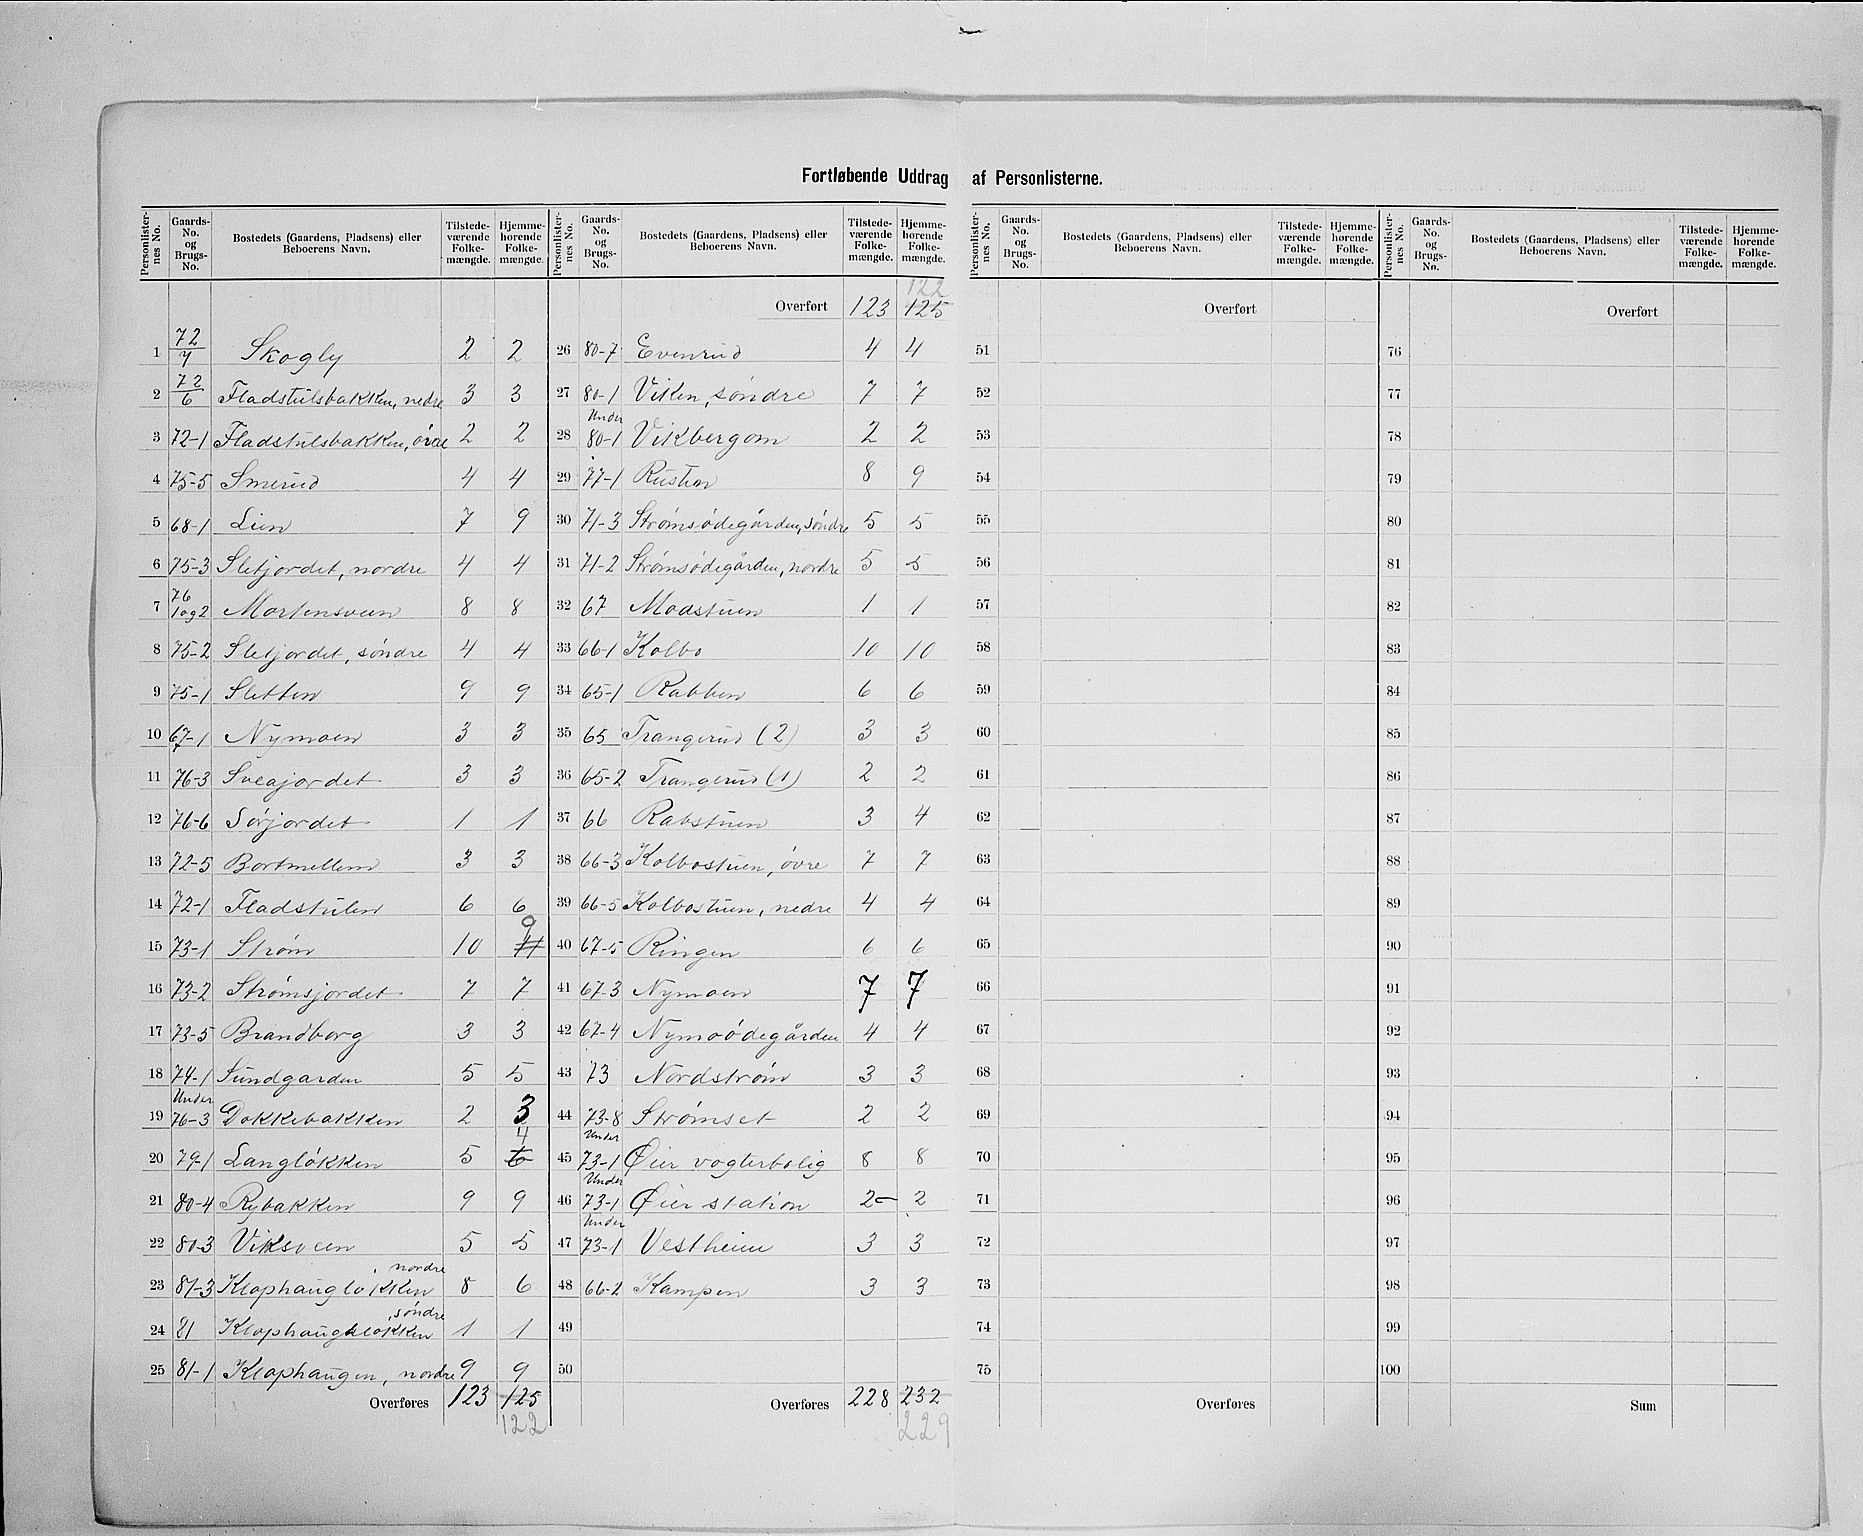 Fortløbende Uddrag af Personlisterne.
Personlisternes No. | Gaards-No. og Brugs-No. | Bostedets (Gaardens, Pladsens) eller Beboerens Navn. | Tilstedeværende Folkemængde. | Hjemmehørende Folkemængde.
1 72/7 Skogly 2 2
2 72/6 Fladstulsbakken, nedre 3 3
3 72-1 Fladstulsbakken, övre 2 2
4 75-5 Smerud 4 4
5 68-1 Lien 7 9
6 75-3 Sletjordet, nordre 4 4
7 76 1og2 Mortensveen 8 8
8 75-2 Sletjordet, söndre 4 4
9 75-1 Sletten 9 9
10 67-1 Nymoen 3 3
11 76-3 Sveajordet 3 3
12 76-6 Sörjordet 1 1
13 72-5 Bortmellem 3 3
14 72-1 Fladstulen 6 6
15 73-1 Strøm 10 11 9
16 73-2 Strømsjordet 7 7
17 73-5 Brandborg 3 3
18 74-1 Sundgarden 5 5
19 Under 76-3 Dokkebakken 2 3
20 79-1 Langlökken 5 6 4
21 80-4 Rybakken 9 9
22 80-3 Viksveen 5 5
23 81-3 Klophauglökken nordre 8 6
24 81 Klophauglökken söndre 1 1
25 81-1 Klophaugen, nordre 9 9
Overføres 123 125
122
Personlisternes No. | Gaards-No. og Brugs-No. | Bostedets (Gaardens, Pladsens) eller Beboerens Navn. | Tilstedeværende Folkemængde. | Hjemmehørende Folkemængde.
122
Overført 123 125
26 80-7 Evenrud 4 4
27 80-1 Viken, söndre 7 7
28 Under 80-1 Vikbergom 2 2
29 77-1 Rustan 8 9
30 71-3 Strømsödegården, söndre 5 5
31 71-2 Strømsödegården, nordre 5 5
32 67 Modstuen 1 1
33 66-1 Kolbo 10 10
34 65-1 Rabben 6 6
35 65 Trangerud (2) 3 3
36 65-2 Trangerud (1) 2 2
37 66 Rabstuen 3 4
38 66-3 Kolbostuen, övre 7 7
39 66-5 Kolbostuen, nedre 4 4
40 67-5 Ringen 6 6
41 67-3 Nymoen 7 7
42 67-4 Nymoödegården 4 4
43 73 Nordstrøm 3 3
44 73-8 Strømset 2 2
45 Under 73-1 Øier vogterbolig 8 8
46 Under 73-1 Øier station 2 2
47 Under 73-1 Vestheim 3 3
48 66-2 Kampen 3 3
49
50
Overføres 228 232
229
Personlisternes No. | Gaards-No. og Brugs-No. | Bostedets (Gaardens, Pladsens) eller Beboerens Navn. | Tilstedeværende Folkemængde. | Hjemmehørende Folkemængde.
Overført
51
52
53
54
55
56
57
58
59
60
61
62
63
64
65
66
67
68
69
70
71
72
73
74
75
Overføres
Personlisternes No. | Gaards-No. og Brugs-No. | Bostedets (Gaardens, Pladsens) eller Beboerens Navn. | Tilstedeværende Folkemængde. | Hjemmehørende Folkemængde.
Overført
76
77
78
79
80
81
82
83
84
85
86
87
88
89
90
91
92
93
94
95
96
97
98
99
100
Sum